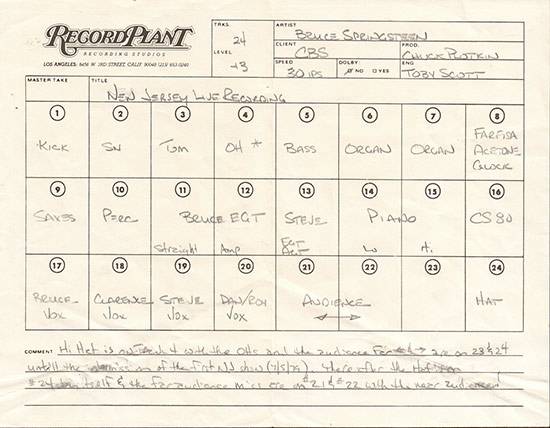 RECORD PLANT
RECORDING STUDIOS
LOS ANGELES: 8456 W. 3RD STREET, CALIF. 90048 (213) 653-0240
TRKS. 24
LEVEL +3
ARTIST BRUCE SPRINGSTEEN
CLIENT CBS
PROD. CHUCK PLOTKIN
SPEED 30 IPS
DOLBY: NO YES
ENG TOBY SCOTT
MASTER TAKE TITLE NEW JERSEY LIVE RECORDING
1 2 3 4 5 6 7 8
KICK SN TOM OH * BASS ORGAN ORGAN FARFISA
ACETONE
GLOCK
9 10 11 12 13 14 15 16
SAXES PERC BRUCE EGT STEVE PIANO CS 80
Straight Amp EGT Lo Hi
17 18 19 20 21 22 23 24
BRUCE CLARENCE STEVE DAN/ROY AUDIENCE HAT
VOX VOX VOX VOX
COMMENT Hi Hat is on Track 4 with the OHs and the audience Far are on 23 & 24
untill the of the first NJ show Thereafter the Hat is on
#24 by itself & the far audience mics are on #21 & #22 with the near audience!